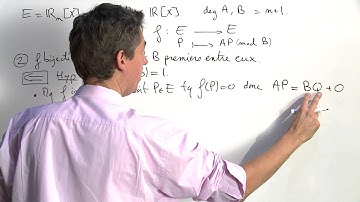 E = ℝₙ[X] ℝ[X] deg A, B = n+1.
f : E → E
P ⟼ AP (mod B)
② f bijecti B premiers entre eux.
⇐ Hyp ) = 1.
• Mq f i t P∈E tq f(P)=0 donc AP = BQ + 0